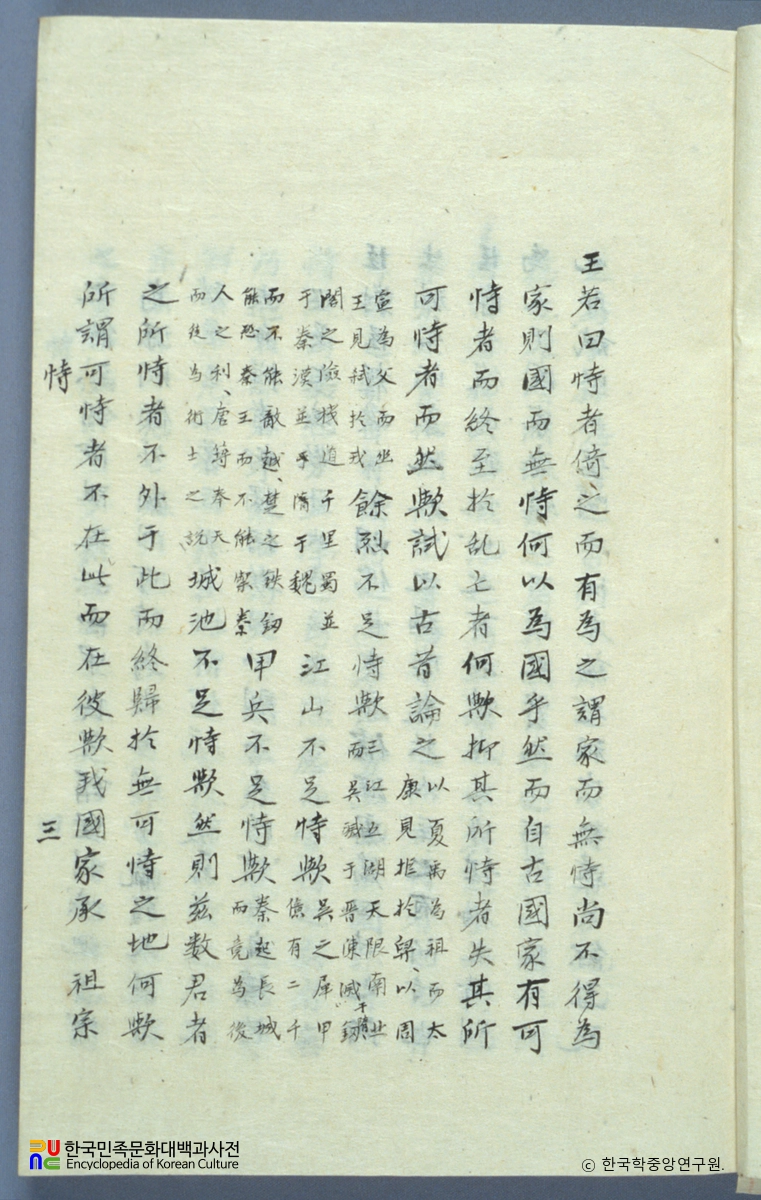 王若曰恃者倚之而有為之謂家而無恃尚不得為
家則國而無恃何以為國乎然而自古國家有可
恃者而終至於乱亡者何歟抑其所恃者失其所
可恃者而然歟試以古昔論之以夏禹為祖而太康見拒於羿、以周
宣為父而幽王見弑於戎餘烈不足恃歟三江五湖天限南北而吳滅于晋陳滅于隋劒
閣之險棧道千里蜀並于秦漢並乎于魏江山不足恃歟吳之犀甲億有二千
而不能敵越、楚之鉄釼能恐秦王而不能禦秦甲兵不足恃歟秦起長城而竟為後
人之利、唐築奉天而徒為術士之説城池不足恃歟然則茲数君者
之所恃者不外于此而終歸於無可恃之地何歟
所謂可恃者不在此而在彼歟我國家承 祖宗
恃 三
한국민족문화대백과사전
Encyclopedia of Korean Culture
© 한국학중앙연구원.